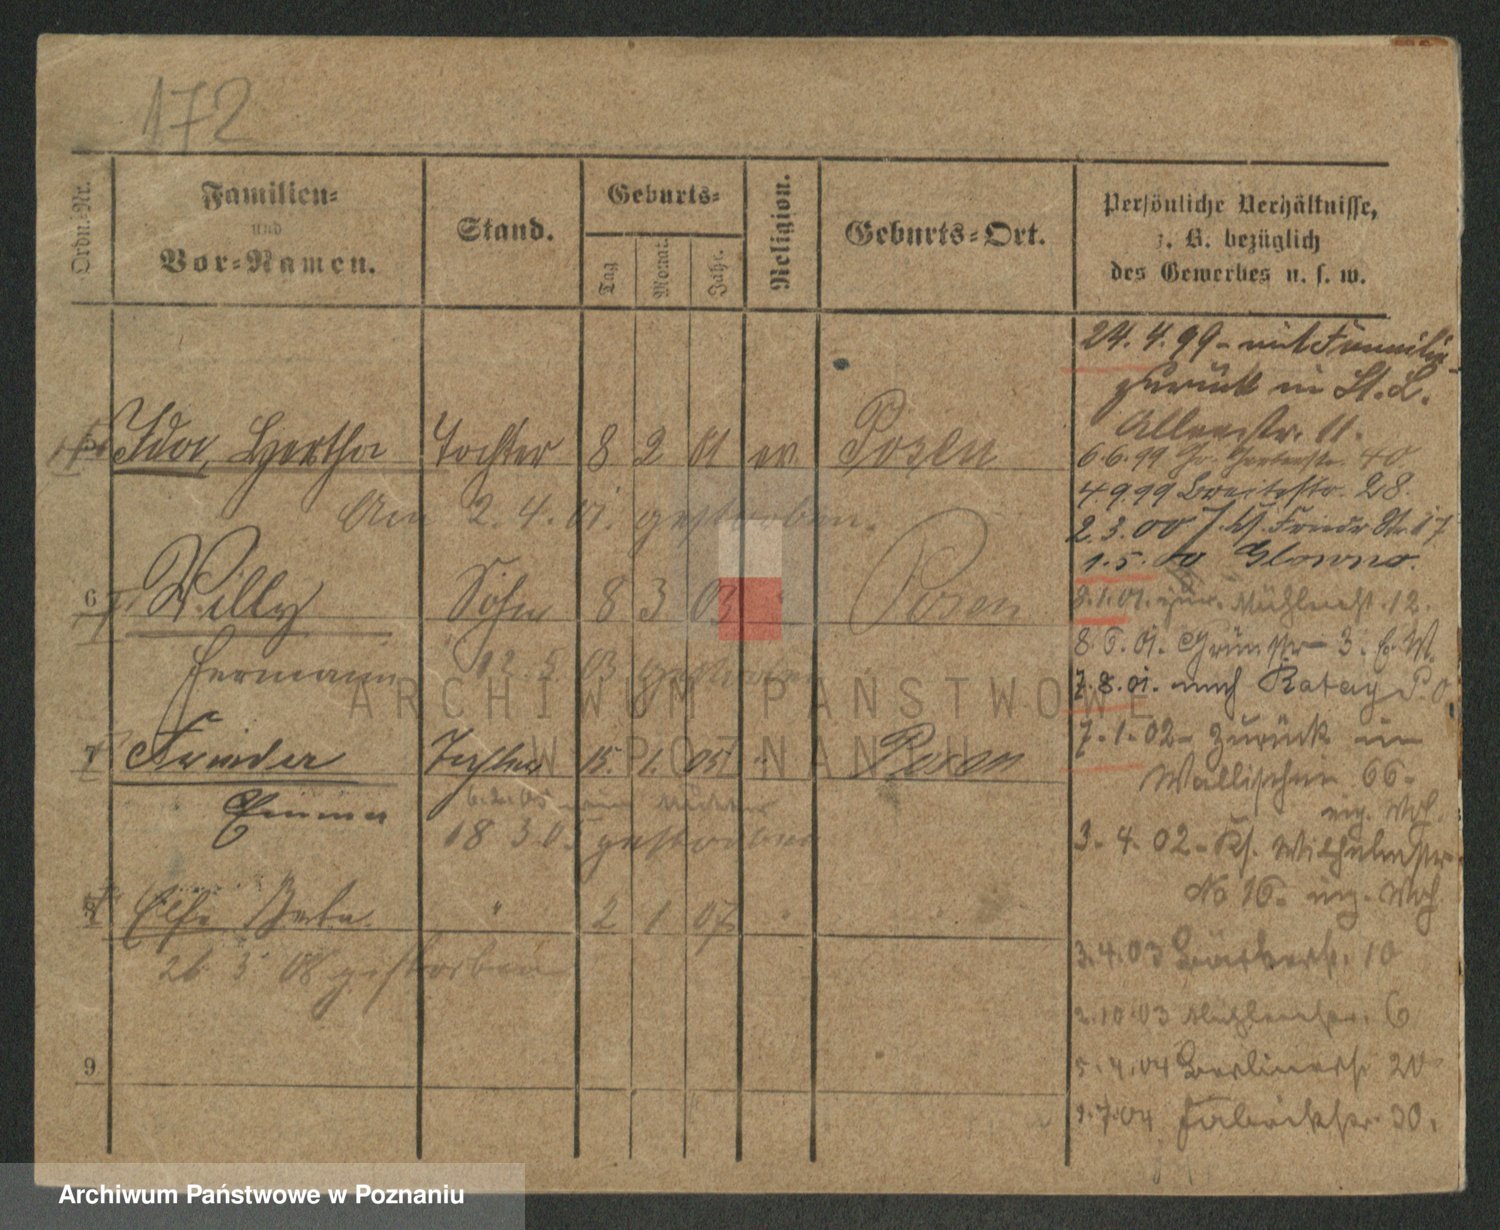 172
Ordn.-Nr.
Familien-
und
Vor-Namen.
Stand.
Geburts-
Tag
Monat.
Jahr.
Religion.
Geburts-Ort.
Persönliche Verhältnisse,
z. B. bezüglich
des Gewerbes u. s. w.
24. 4. 99 - mit Familie
zurück in St. L.
11.
6. 6. 99 Gr. Gerberstr. 40
4 9 99 Breitestr. 28.
2. 3. 00 Friedr Str. 17
1. 5. 00 Glowno.
8. 1. 01. Mühlenst. 12.
8. 6. 01. Grünstr 3.
7. 8. 01. nach Rataj P. O.
7. 1. 02 - zurück in
Wallischei 66 -
eig. Wh.
3. 4. 02 - Kl. Wilhelmstr
No 16 - eig. Wh.
3. 4. 03 Bäckerstr. 10
2. 10. 03 Mühlenstr. 6
5. 4. 04 Berlinerstr 20
1. 7. 04 30.
Ida, Hertha Tochter 8 2 01 ev. Posen
Am 2. 4. 01. gestorben.
6 Willy Sohn 8 3 03 " Posen
Hermann 12. 5. 03 gestorben
7 Frieda Tochter 15. 1. 05 " Posen
Emma
18 3. 05 gestorben
Else " 2 1 07 "
26 3 08 gestorben
9
ARCHIWUM PAŃSTWOWE
W POZNANIU
Archiwum Państwowe w Poznaniu